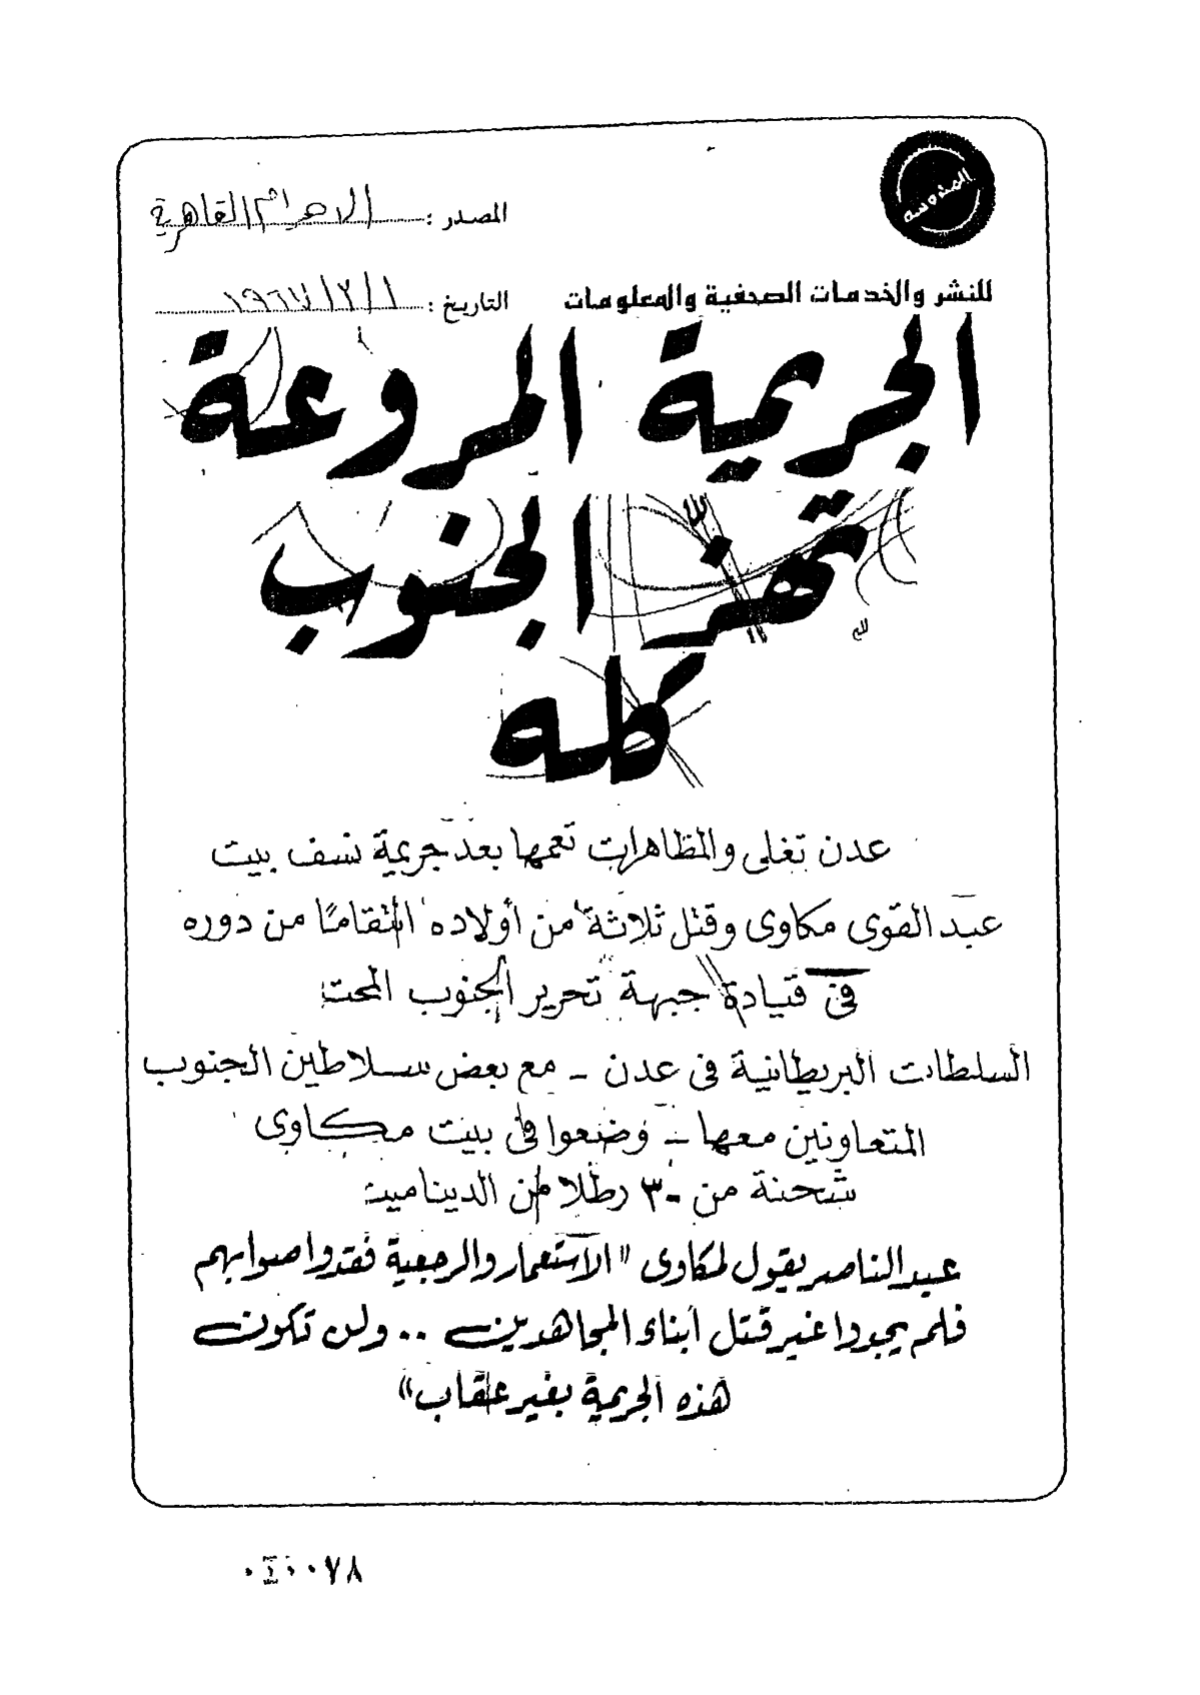 المحروسة
المصدر : الاهرام القاهرية
للنشر والخدمات الصحفية والمعلومات التاريخ : ١ / ٢ / ١٩٦٧
الجريمة المروعة
تهز الجنوب
كله
عدن تغلى والمظاهرات تعمها بعد جريمة نسف بيت
عبد القوى مكاوى وقتل ثلاثة من أولاده انتقامًا من دوره
فى قيادة جبهة تحرير الجنوب المحت
السلطات البريطانية فى عدن - مع بعض سلاطين الجنوب
المتعاونين معها - وضعوا فى بيت مكاوى
شحنة من ٣٠ رطلا من الديناميت
عبد الناصر يقول لمكاوى "الاستعمار والرجعية فقدوا صوابهم
فلم يجدوا غير قتل أبناء المجاهدين .. ولن تكون
هذه الجريمة بغير عقاب"